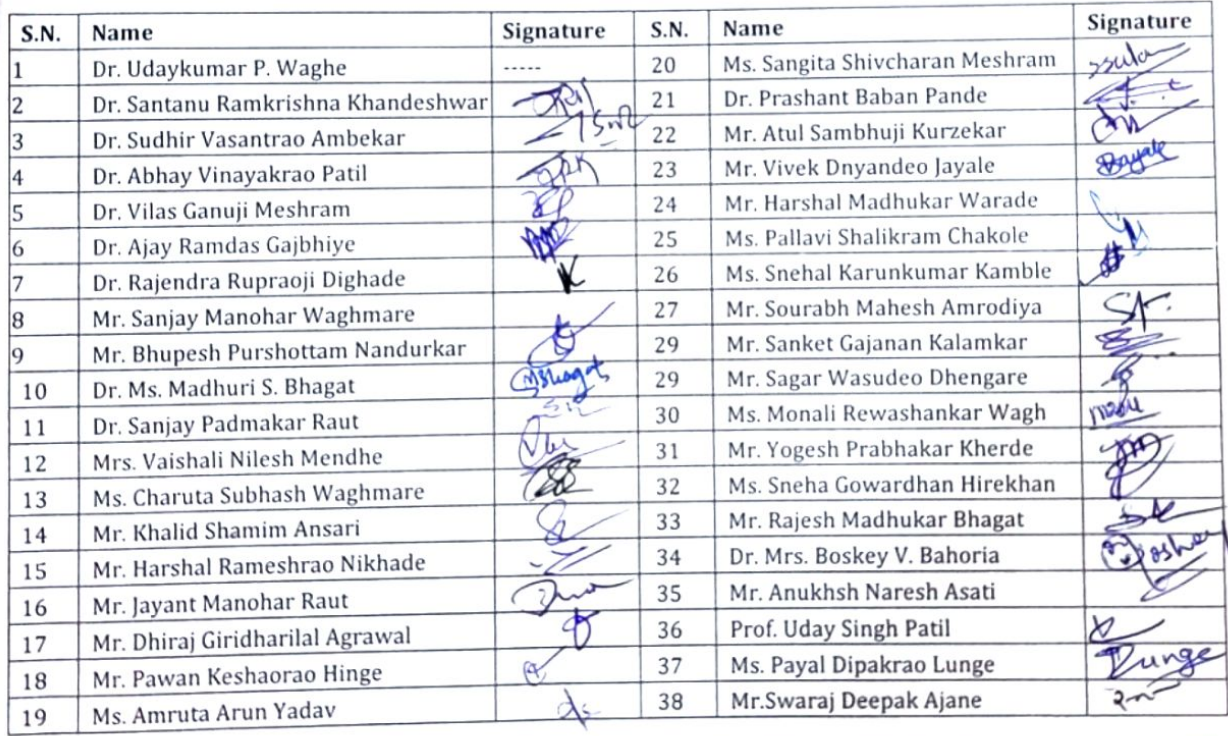 S.N. Name Signature S.N. Name Signature
1 Dr. Udaykumar P. Waghe ----- 20 Ms. Sangita Shivcharan Meshram
2 Dr. Santanu Ramkrishna Khandeshwar 21 Dr. Prashant Baban Pande
3 Dr. Sudhir Vasantrao Ambekar 22 Mr. Atul Sambhuji Kurzekar
4 Dr. Abhay Vinayakrao Patil 23 Mr. Vivek Dnyandeo Jayale
5 Dr. Vilas Ganuji Meshram 24 Mr. Harshal Madhukar Warade
6 Dr. Ajay Ramdas Gajbhiye 25 Ms. Pallavi Shalikram Chakole
7 Dr. Rajendra Rupraoji Dighade 26 Ms. Snehal Karunkumar Kamble
8 Mr. Sanjay Manohar Waghmare 27 Mr. Sourabh Mahesh Amrodiya
9 Mr. Bhupesh Purshottam Nandurkar 29 Mr. Sanket Gajanan Kalamkar
10 Dr. Ms. Madhuri S. Bhagat MSbhagat 29 Mr. Sagar Wasudeo Dhengare
11 Dr. Sanjay Padmakar Raut 30 Ms. Monali Rewashankar Wagh
12 Mrs. Vaishali Nilesh Mendhe 31 Mr. Yogesh Prabhakar Kherde
13 Ms. Charuta Subhash Waghmare 32 Ms. Sneha Gowardhan Hirekhan
14 Mr. Khalid Shamim Ansari 33 Mr. Rajesh Madhukar Bhagat
15 Mr. Harshal Rameshrao Nikhade 34 Dr. Mrs. Boskey V. Bahoria
16 Mr. Jayant Manohar Raut 35 Mr. Anukhsh Naresh Asati
17 Mr. Dhiraj Giridharilal Agrawal 36 Prof. Uday Singh Patil
18 Mr. Pawan Keshaorao Hinge 37 Ms. Payal Dipakrao Lunge Lunge
19 Ms. Amruta Arun Yadav 38 Mr.Swaraj Deepak Ajane